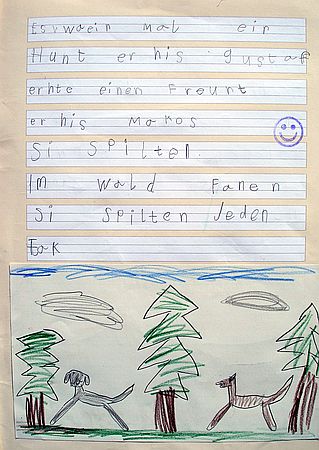 Es waein mal ein
Hunt er his gustaf
erhte einen Freunt
er his Maros
Si Spilten
Im Wald Fanen
Si Spilten Jeden
Tak